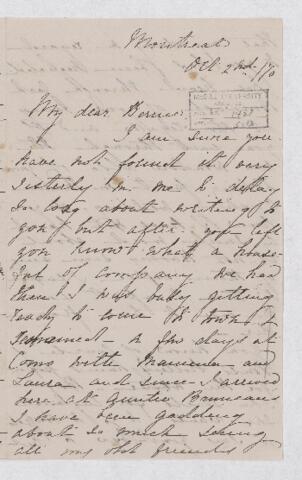 Montreal
Oct 2nd /70
McGILL UNIVERSITY
My dear Bernard
I am sure you
have not found it very
sisterly in me to delay
so long about writing to
you but after you left
you know what a house-
ful of company we had
then I was busy getting
ready to come to town &
remained a few days at
Como with Mamma and
Laura and since I arrived
here at Auntie Bruneaus
I have been gadding
about so much seeing
all my old friends